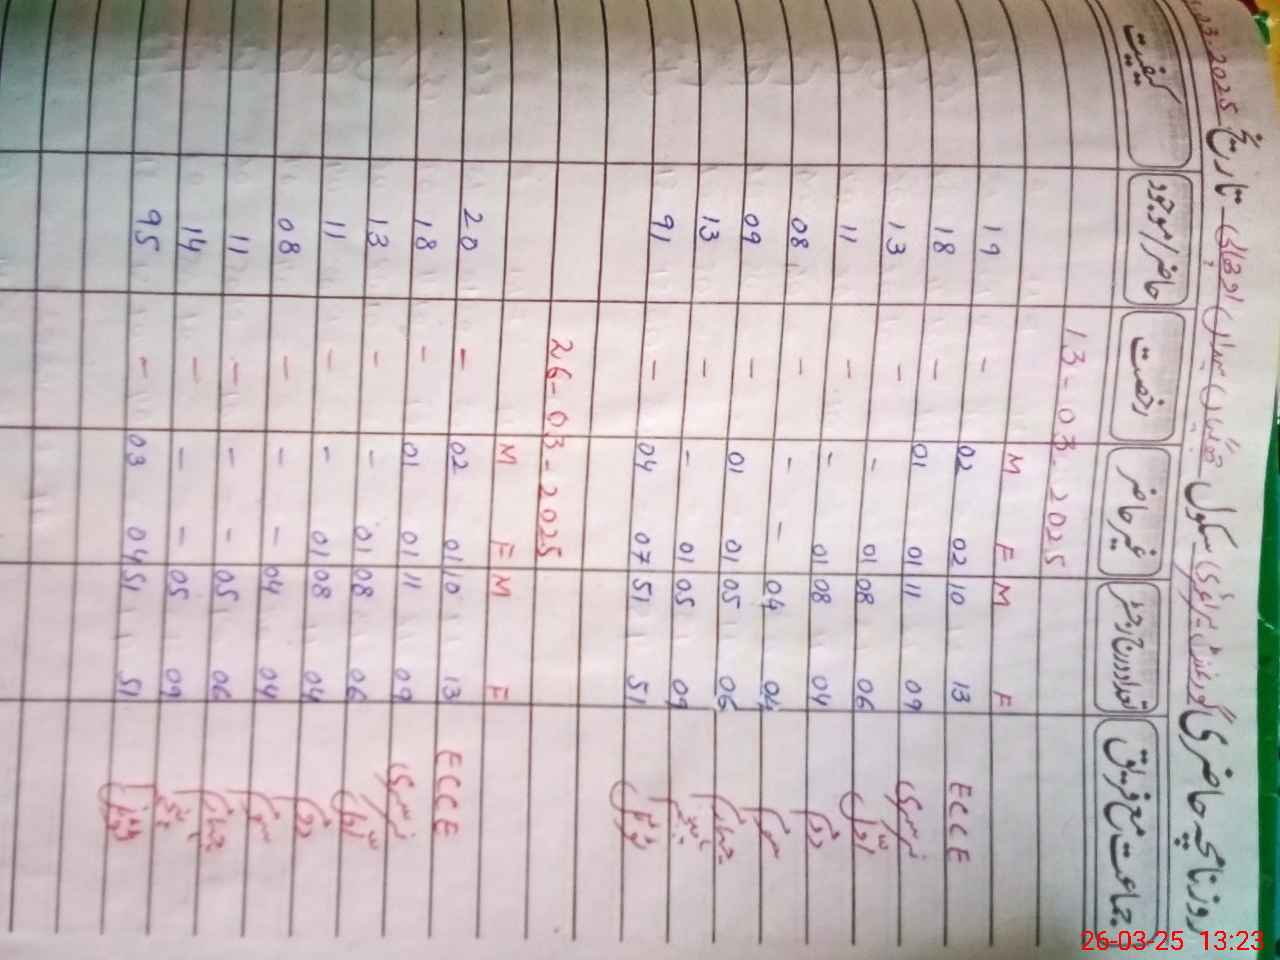 روزنامچہ حاضری گورنمنٹ پرائمری سکول میدان اوچھالی تاریخ 03.2025
جماعت مع فریق تعداد درج رجسٹر غیر حاضر رخصت حاضر/موجود کیفیت
13-03-2025
M F M F
19 - 02 02 10 13 ECCE
18 - 01 01 11 09 نرسری
13 - - 01 08 06 اول
11 - - 01 08 04 دوم
08 - - - 04 04 سوم
09 - 01 01 05 06 چہارم
13 - - 01 05 09 پنجم
91 - 04 07 51 51 ٹوٹل
26-03-2025
M F M F
20 - 02 01 10 13 ECCE
18 - 01 01 11 09 نرسری
13 - - 01 08 06 اول
11 - - 01 08 04 دوم
08 - - - 04 04 سوم
11 - - - 05 06 چہارم
14 - - - 05 09 پنجم
95 - 03 04 51 51 ٹوٹل
26-03-25 13:23